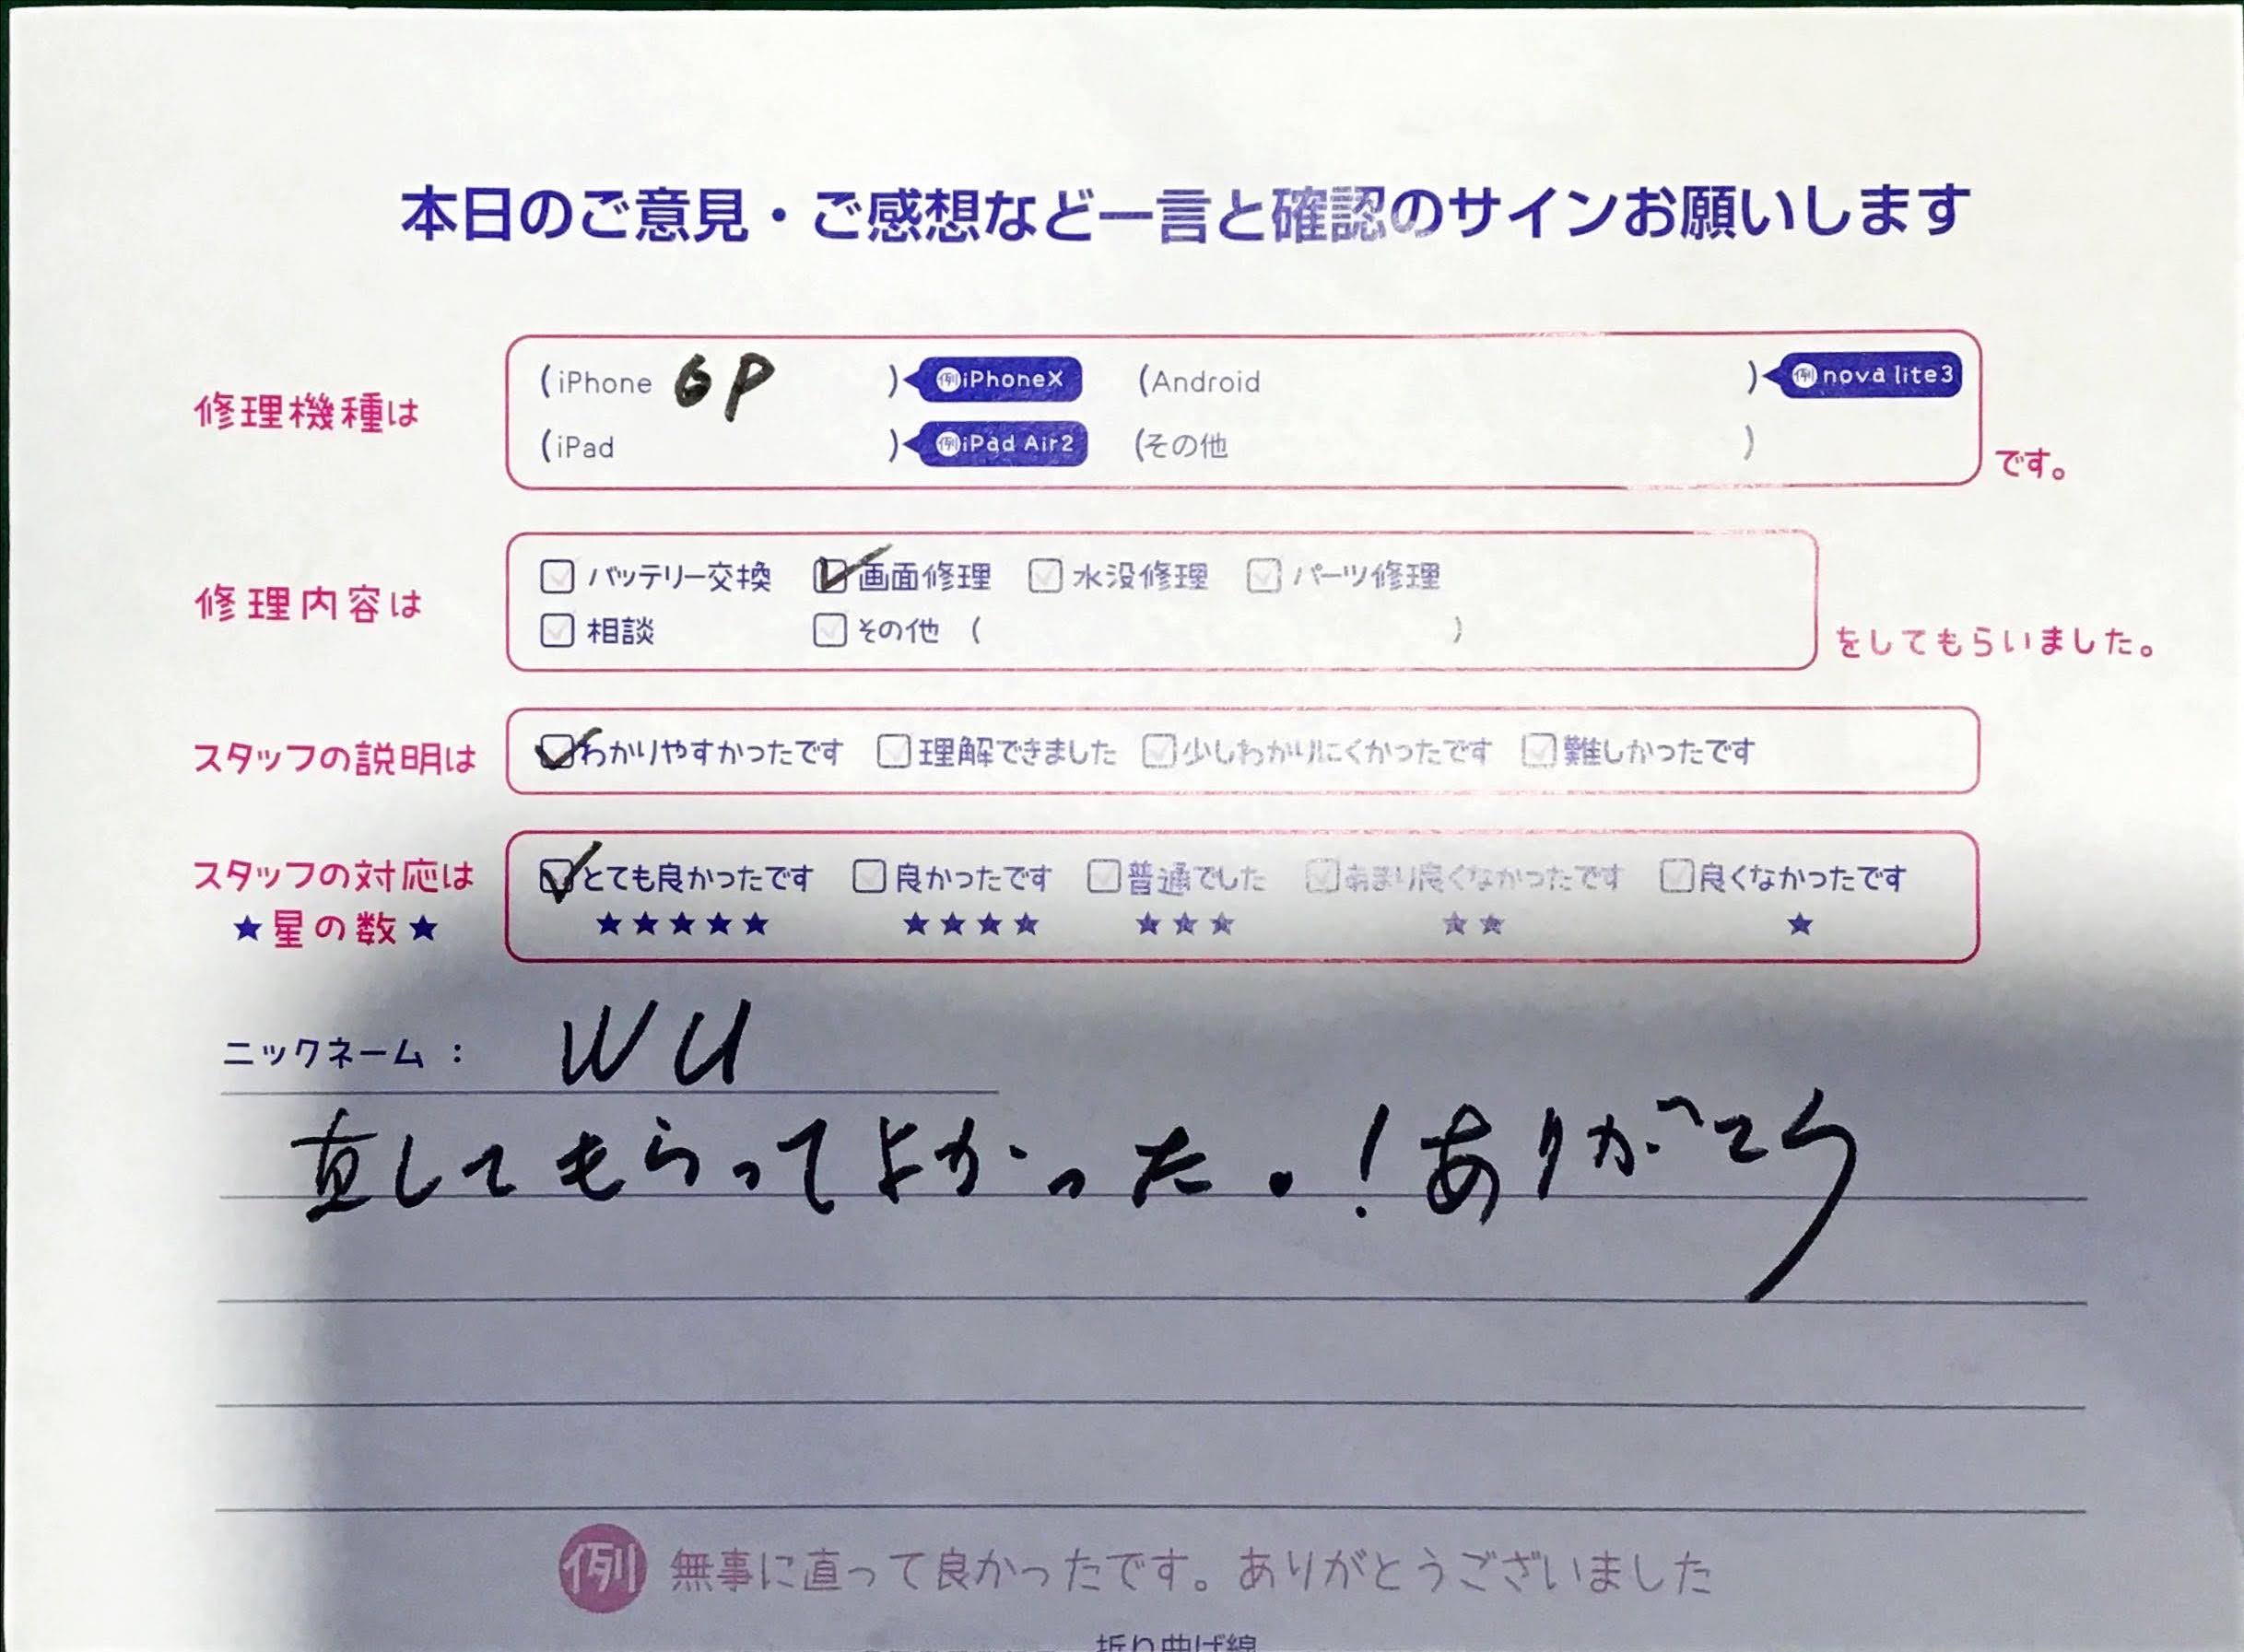 本日のご意見・ご感想など一言と確認のサインお願いします
修理機種は
(iPhone 6P ) 例iPhoneX (Android ) 例nova lite3
(iPad ) 例iPad Air2 (その他 ) です。
修理内容は
バッテリー交換 画面修理 水没修理 パーツ修理
相談 その他 ( ) をしてもらいました。
スタッフの説明は わかりやすかったです 理解できました 少しわかりにくかったです 難しかったです
スタッフの対応は とても良かったです 良かったです 普通でした あまり良くなかったです 良くなかったです
★星の数★ ★★★★★ ★★★★ ★★★ ★★ ★
ニックネーム： WU
直してもらってよかった。！ありがとう
例 無事に直って良かったです。ありがとうございました
折り曲げ線